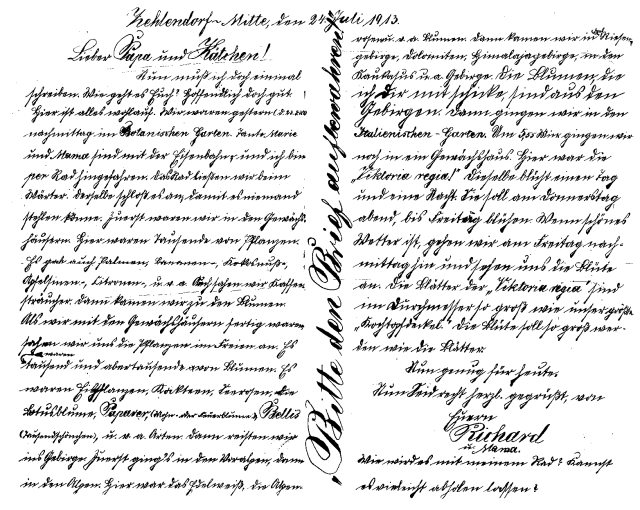 Zehlendorf-Mitte, den 24. Juli 1913.
Lieber Papa und Kätchen!
Nun muß ich doch einmal
schreiben. Wie geht es Euch? Hoffentlich doch gut.
Hier ist alles wohlauf. Wir waren gestern
nachmittag im Botanischen Garten. Tante Marie
und Mama sind mit der Eisenbahn, und ich bin
per Rad hingefahren. Das Rad ließen wir beim
Wärter. Derselbe schloß es an, damit es niemand
stehlen könne. Zuerst waren wir in den Gewächs-
häusern. Hier waren Tausende von Pflanzen.
Es gab auch Palmen, Bananen-, Kokosnuß-,
Apfelsinen-, Citronen-, u.v.a. Auch sahen wir Kaffee-
sträucher. Dann kamen wir zu den Blumen.
Als wir mit den Gewächshäusern fertig waren,
sahen wir uns die Pflanzen im Freien an. Es
waren
tausend und abertausende von Blumen. Es
waren Pflanzen, Kakteen, Seerosen, die
Lotusblume, Papaver, u. Bellis
(Tausendschönchen), u.v.a. Arten. Dann reisten wir
ins Gebirge. Zuerst ging's in den Voralpen, dann
in den Alpen. Hier war das Edelweiß, die Alpen-
rosen u.v.a. Blumen. Dann kamen wir in das Riesen-
gebirge, Dolomiten, Himalajagebirge, in den
Kaukasus u.a. Gebirge. Die Blumen, die
ich Dir mitschicke, sind aus den
Gebirgen. Dann gingen wir in den
Italienischen-Garten. Um gingen wir
noch in ein Gewächshaus. Hier war die
"Viktoria regia!" Dieselbe blüht einen Tag
und eine Nacht. Sie soll am Donnerstag
abend, bis Freitag blühen. Wenn schönes
Wetter ist, gehen wir am Freitag nach-
mittag hin und sehen uns die Blüte
an. Die Blätter der "Viktoria regia" sind
im Durchmesser so groß wie unser größter
Kochtopfdeckel. Die Blüte soll so groß wer-
den wie die Blätter.
Nun genug für heute.
Nun Seid recht herzl. gegrüßt, von
Euern
Richard
u. Mama.
Wie wird es mit meinem Rad? Kannst
es vieleicht abholen lassen?
"Bitte den Brief aufbewahren!"